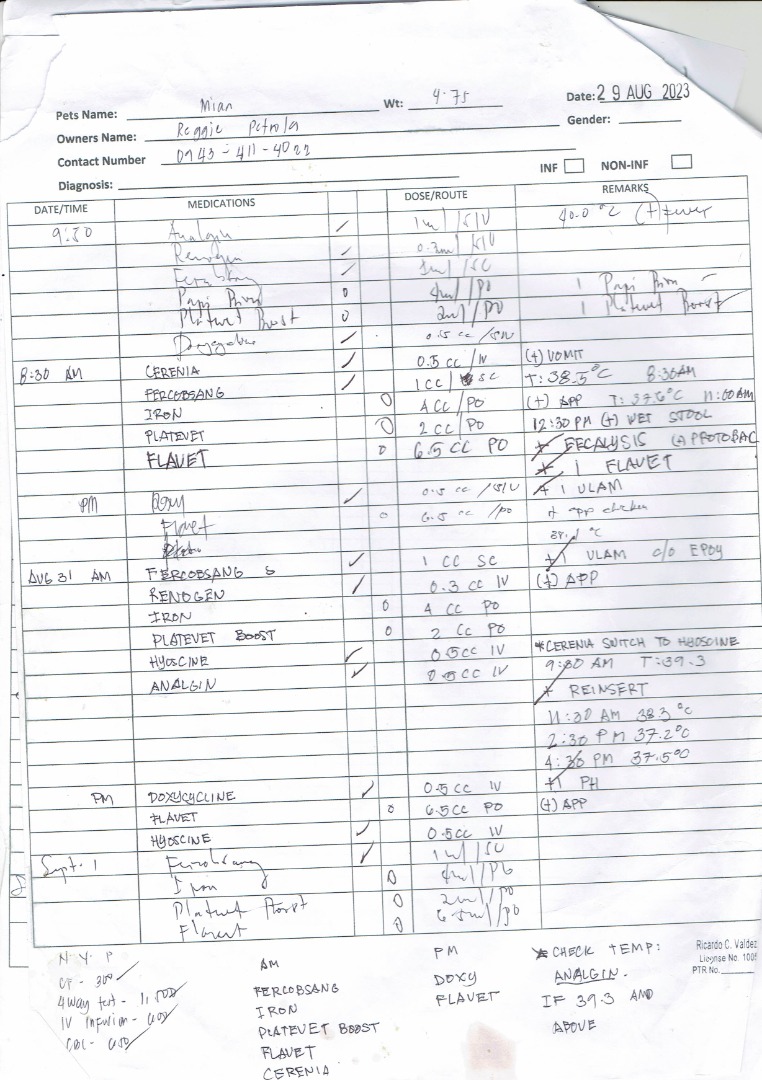 Pets Name: Mian Wt: 4.75 Date: 29 AUG 2023
Owners Name: Reggie Petrola Gender:
Contact Number 0943-411-4022
Diagnosis: INF NON-INF
DATE/TIME MEDICATIONS DOSE/ROUTE REMARKS
9:50 Analgin / 1ml /S/V 40.0 °C (+) fever
Renogen / 0.3ml /S/V
/ 1ml /SC
Papi Iron 0 4ml /PO 1 Papi Iron
Platevet Boost 0 2ml /PO 1 Platevet Boost
/ 0.5 cc /S/V
8:30 AM CERENIA / 0.5 CC /IV (+) VOMIT
FERCOBSANG / 1 CC / SC T: 38.5°C 8:30AM
IRON 0 4 CC /PO (+) APP T: 37.6°C 11:00AM
PLATEVET 0 2 CC /PO 12:30 PM (+) WET STOOL
FLAVET 0 6.5 CC PO * FECALYSIS (+) PROTOBAC
* 1 FLAVET
PM Doxy / 0.5 cc /S/V + 1 ULAM
Flavet 0 6.5 cc /po + app chicken
°C
AUG 31 AM FERCOBSANG S / 1 CC SC +1 ULAM c/o EPOY
RENOGEN / 0.3 CC IV (+) APP
IRON 0 4 CC PO
PLATEVET BOOST 0 2 CC PO
HYOSCINE / 0.5CC IV *CERENIA SWITCH TO HYOSCINE
ANALGIN / 0.5CC IV 9:30 AM T:39.3
* REINSERT
11:30 AM 38.3 °C
2:30 PM 37.2°C
4:30 PM 37.5°C
PM DOXYCYCLINE / 0.5CC IV +1 PH
FLAVET 0 6.5CC PO (+) APP
HYOSCINE / 0.5CC IV
Sept. 1 Fercobsang / 1ml /SC
Iron 0 4ml /PO
Platevet Boost 0 2ml /po
Flavet 0 6.5ml /po
N Y P
CF - 300
4way test - 1,500
IV Infusion - 600
CBC - 650
AM
FERCOBSANG
IRON
PLATEVET BOOST
FLAVET
CERENIA
PM
DOXY
FLAVET
* CHECK TEMP:
ANALGIN.
IF 39.3 AND
ABOVE
Ricardo C. Valdez
License No. 1005
PTR No.